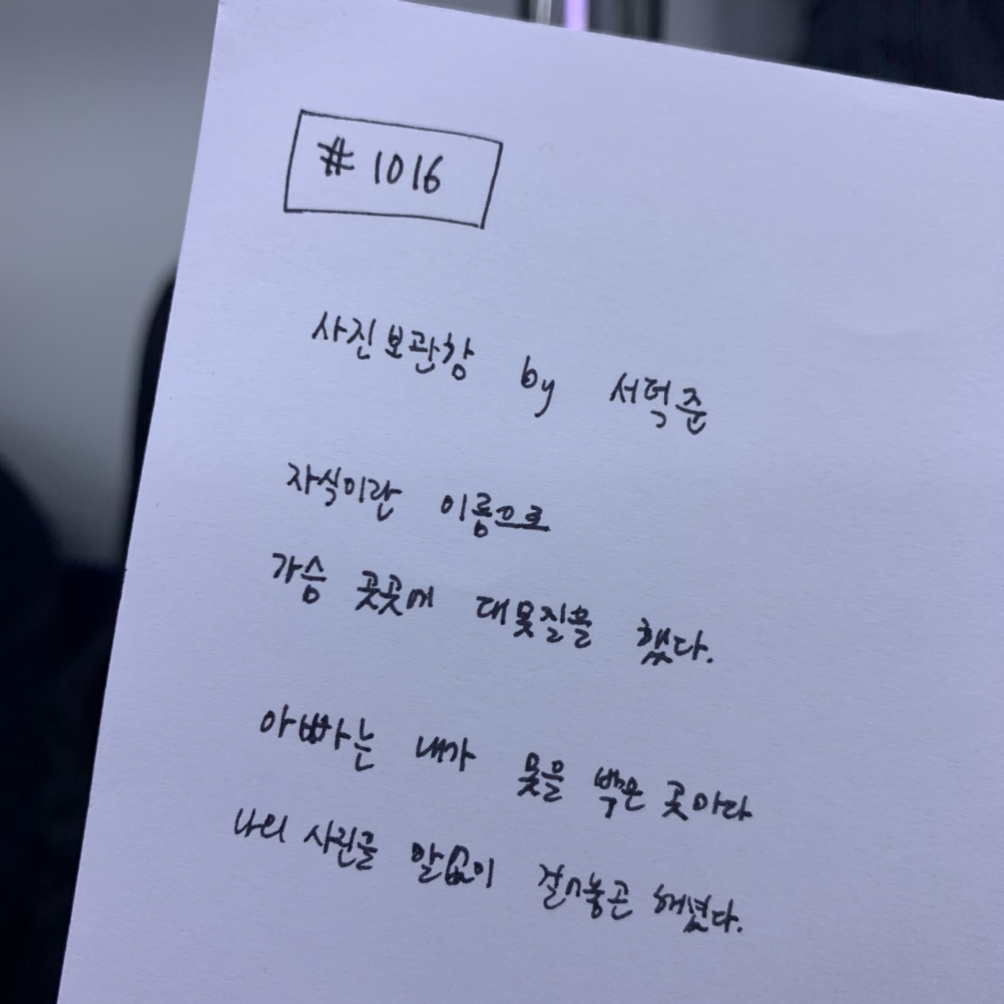 #1016
사진보관함 by 서덕준
자식이란 이름으로
가슴 곳곳에 대못질을 했다.
아빠는 내가 못을 박은 곳마다
나의 사진을 말없이 걸어놓곤 하셨다.